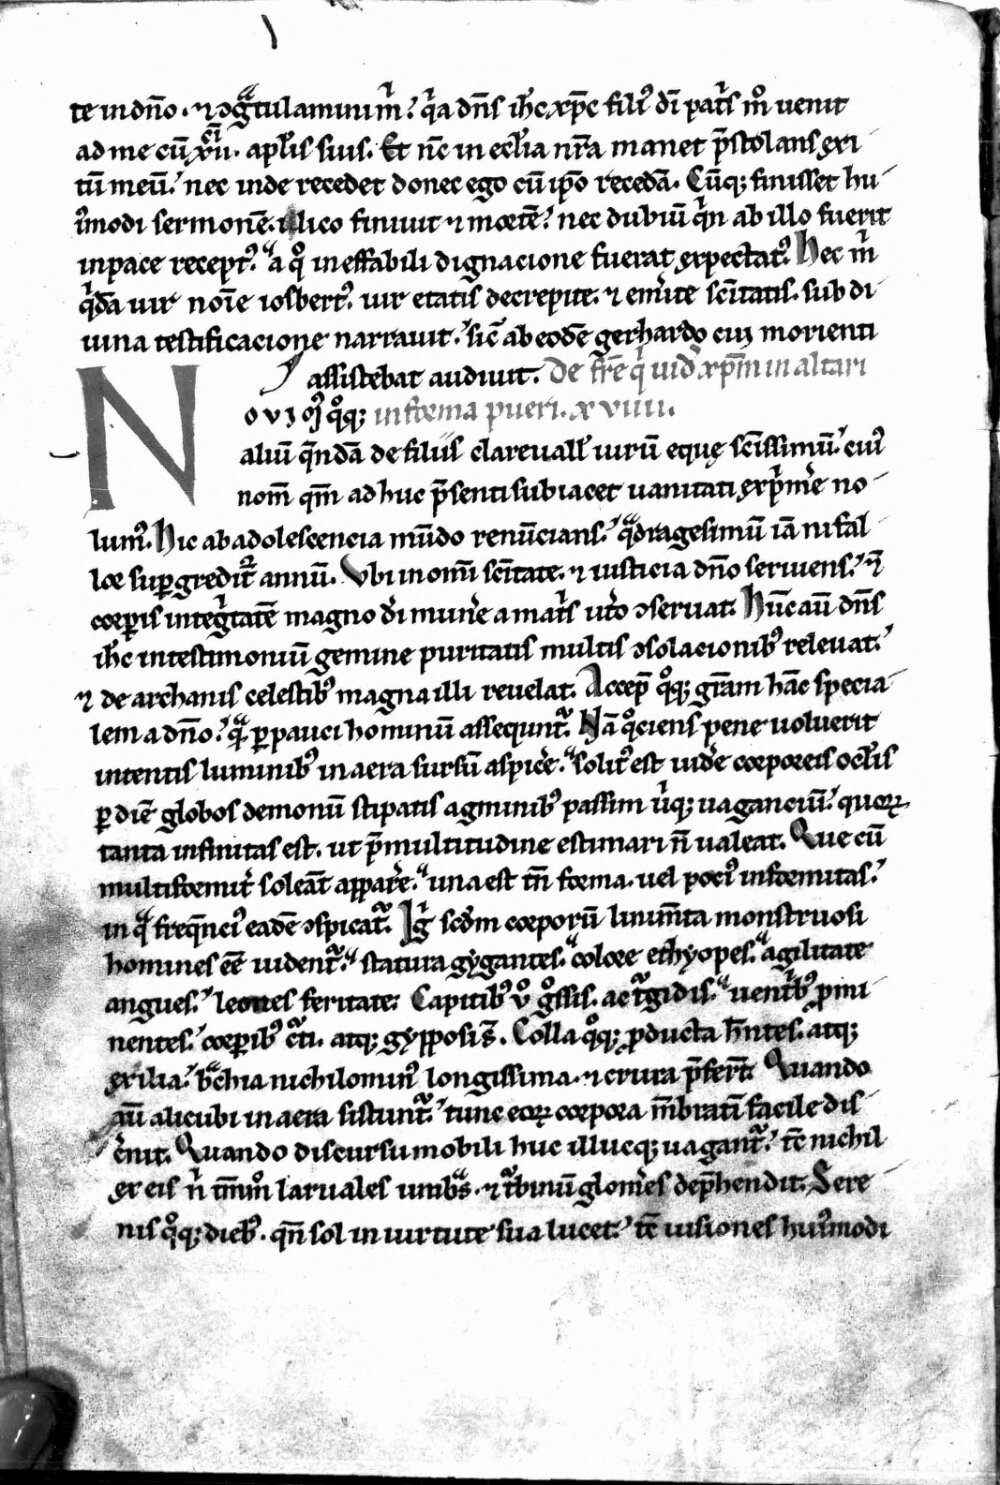 te in dn̄o. ⁊ ꝯgᵃtulamini m̍. q̍a dn̄s ih̄c xp̄c fili᷒ di̅ pat̍s mº uenit
ad me cū xíí. apl̄is suis. Et nc̄ in eccl̄ia nr̄a manet p̄stolans exi
tū meū. nec inde recedet donec ego cū ip̄o recedā. Cūq; finisset hu
i᷒modi sermonē. illico finiuit ⁊ mortē. nec dubiū q̍n ab illo fuerit
in pace recept᷒. a qº ineffabili dignacione fuerat expectat᷒. Hec m̍
q̍dā uir noīe iosbert᷒. uir etatis decrepite. ⁊ em̍ite sc̄itatis. sub di
uina testificacione narrauit. sic̄ ab eodē gerhardo cui morienti
assistebat audiuit. De fr̄e q̍ uid̍ xp̄m in altari
NOVI qºq; in forma pueri. xviiii.
aliū q̄ndā de filiis clareuall̄ uirū eque sc̄issimū. cui᷒
nom̄ qm̄ adhuc p̄senti subiacet uanitati exp̍m̍e no
lum᷒. Hic ab adolescencia mūdo renūcians. qᵃdragesimū iā ni fal
lor sup̱gredit̃ annū. Vbi in omī sc̄itate. ⁊ iusticia dn̄o seruiens. ⁊
corp̱is integ̍tatē magno di̅ mun̍e a mat̍s ut̍o ꝯseruat. Hūc aū dn̄s
ih̄c in testimoniū gemine puritatis multis ꝯsolacionib᷒ releuat.
⁊ de archanis celestib᷒ magna illi reuelat. Accep̄ qºq; gr̄am hāc specia
lem a dn̄o. qᵃ p̱pauci hominū assequnt̃. Nā qºciens pene uoluerit
intentis luminib᷒ in aera sursū aspic̍e. solit᷒ est uid̍e corporeis ocl̄is
p̱ diē globos demonū stipatis agminib᷒ passim ub̍q; uaganciū. quoꝝ
tanta infinitas est. ut p̄ multitudine estimari n̄ ualeat. Que cū
multiformit̍ soleāt appar̍e. una est tn̄ forma. uel poci᷒ informitas.
in qᵃ freq̄nci᷒ eadē ꝯspicat̃. Ig̍ sc̄dm corporū liniam̄ta monstruosi
homines eē uident̃. statura gygantes. colore ethyopes. agilitate
angues. leones feritate. Capitib᷒ uº gºssis. ac t̃gidis. uent̍b᷒ ꝓmi
nentes. corp̱ib᷒ c̃ti. atq; gypposis̄. Colla qºq; ꝓducta hn̄tes. atq;
exilia. bᵃchia nichilomin᷒ longissima. ⁊ crura p̄fert̄. Quando
aū alicubi in aera sistunt̃. tunc eoꝝ corpora m̄bratī facile dis
c̍nit. Quando discursu mobili huc illucq; uagant̃. tc̄ nichil
ex eis n̍ tm̄mº laruales umbᵃs. ⁊ t̃binū glom̍es dep̄hendit. Sere
nis qºq; dieb᷒. qn̄ sol in uirtute sua lucet. tc̄ uisiones hui᷒modi